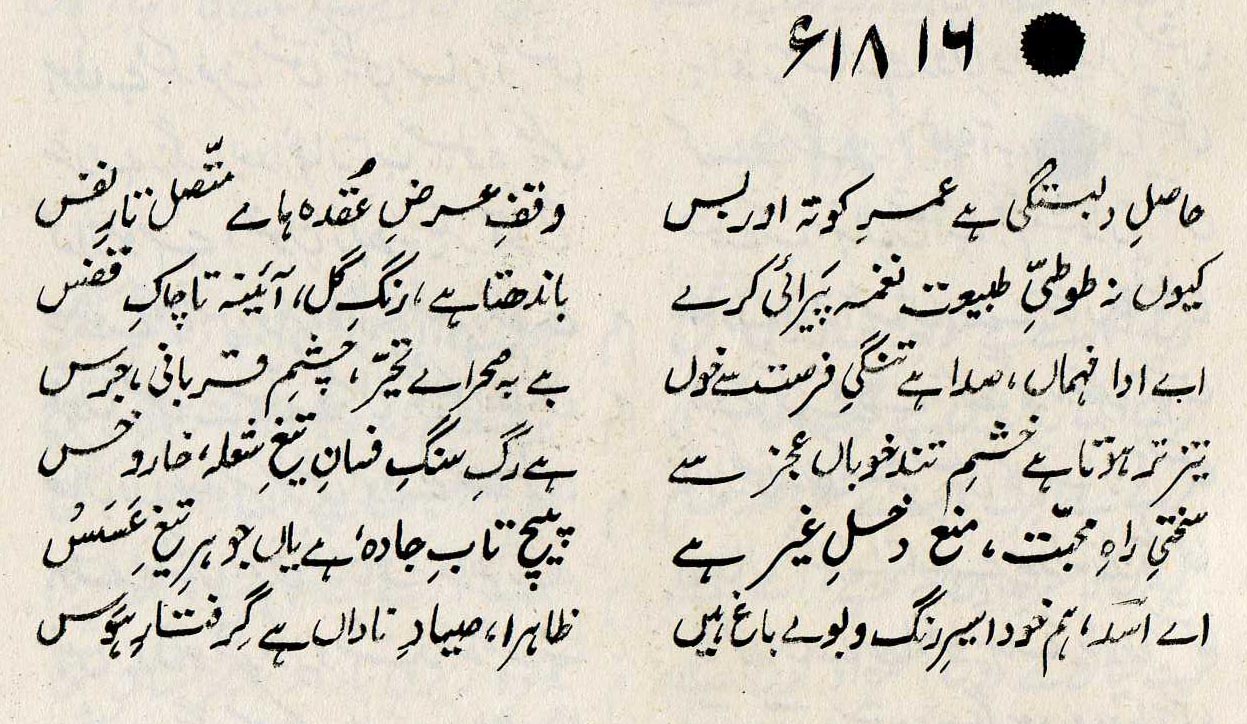 ۱۸۱۶ء
حاصلِ دلبستگی ہے عمرِ کوتہ اور بس وقفِ عرضِ عُقدہ ہاے متّصل تارِ نفس
کیوں نہ طوطیِّ طبیعت نغمہ پَیرائی کرے باندھتا ہے، رنگِ گل، آئینہ تا چاکِ قفس
اے ادا فہماں، صدا ہے تنگیِ فرصت سے خوں ہے بہ صحراے تحیّر، چشمِ قربانی، جرس
تیز تر ہوتا ہے خشمِ تند خوباں عجز سے ہے رگِ سنگِ فسانِ تیغِ شعلہ، خار و خس
سختیِ راہِ محبّت، منع دخلِ غیر ہے پیچ تابِ جادہ ہے یاں جوہرِ تیغِ عَسَسْ
اے اسدؔ، ہم خود اسیرِ رنگ و بوے باغ ہیں ظاہرا، صیادِ ناداں ہے گِرفتارِ ہَوَس